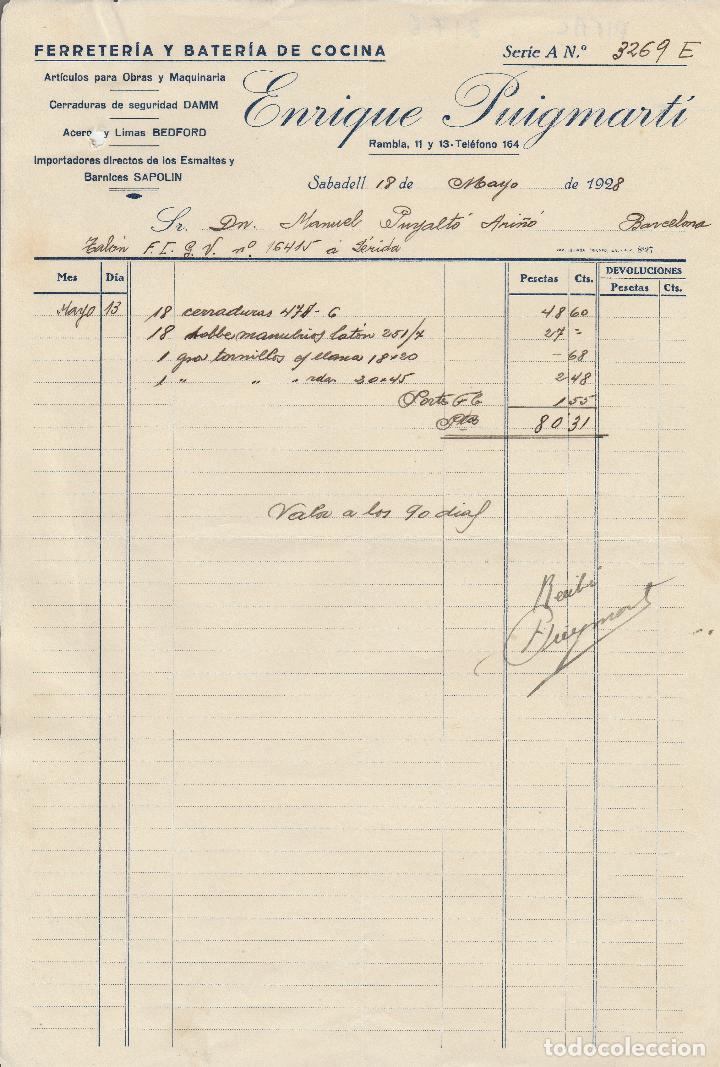 FERRETERÍA Y BATERÍA DE COCINA
Serie A N.º 3269 E
Artículos para Obras y Maquinaria
Cerraduras de seguridad DAMM
Acero y Limas BEDFORD
Importadores directos de los Esmaltes y
Barnices SAPOLIN
Enrique Puigmartí
Rambla, 11 y 13-Teléfono 164
Sabadell 18 de Mayo de 1928
Sr. Dn. Manuel Puyaltó Ariñó Barcelona
Talón F. C. G. V. nº 16415 á Lérida
Mes Día Pesetas Cts. DEVOLUCIONES
Pesetas Cts.
Mayo 13 18 cerraduras 478-6 48 60
18 manubrios latón 251/4 27 =
1 gra tornillos c/ llana 18×20 - 68
1 " " " rda 20×45 2 48
Porte F C 1 55
Ptas 80 31
Valor a los 90 dias
Recibí
Puigmartí
todocoleccion.net